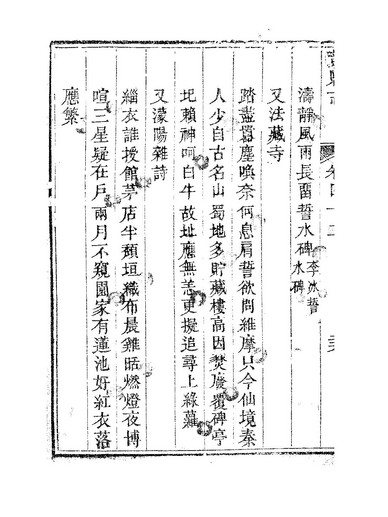 濤靜風雨長留誓水碑李冰誓水碑
又法藏寺
踏盡囂塵喚奈何息肩誓欲問維摩只今仙境秦
人少自古名山蜀地多貯藏樓高因焚廢覆碑亭
圯賴神呵白牛故址應無恙更擬追尋上綠蘿
又濛陽雜詩
緇衣誰授館茅店半頹垣織布晨雞聒燃燈夜博
喧三星疑在戶兩月不窺園家有蓮池好紅衣落
應繁